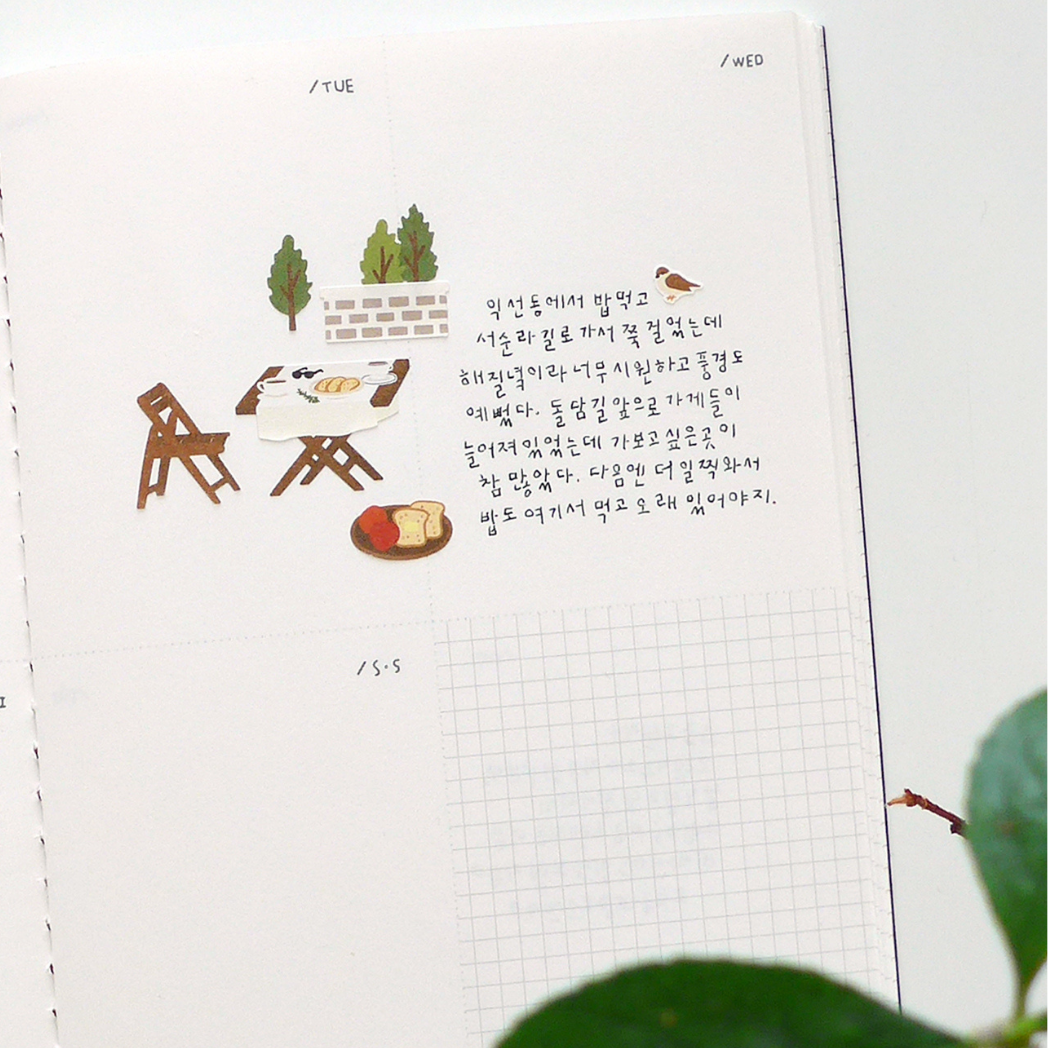 /TUE
/WED
익선동에서 밥먹고
서순라길로가서 쭉 걸었는데
해질녘이라 너무 시원하고 풍경도
예뻤다. 돌담길 앞으로 가게들이
늘어져있었는데 가보고싶은곳이
참 많았다. 다음엔 더 일찍와서
밥도 여기서 먹고 오래 있어야지.
/S·S